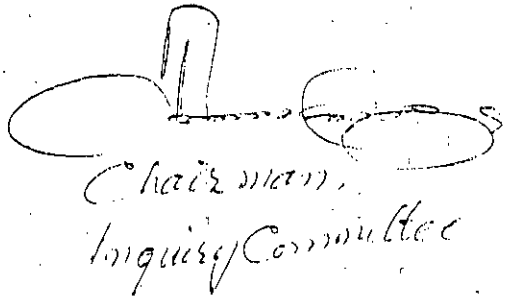 Chairman,
Inquiry Committee